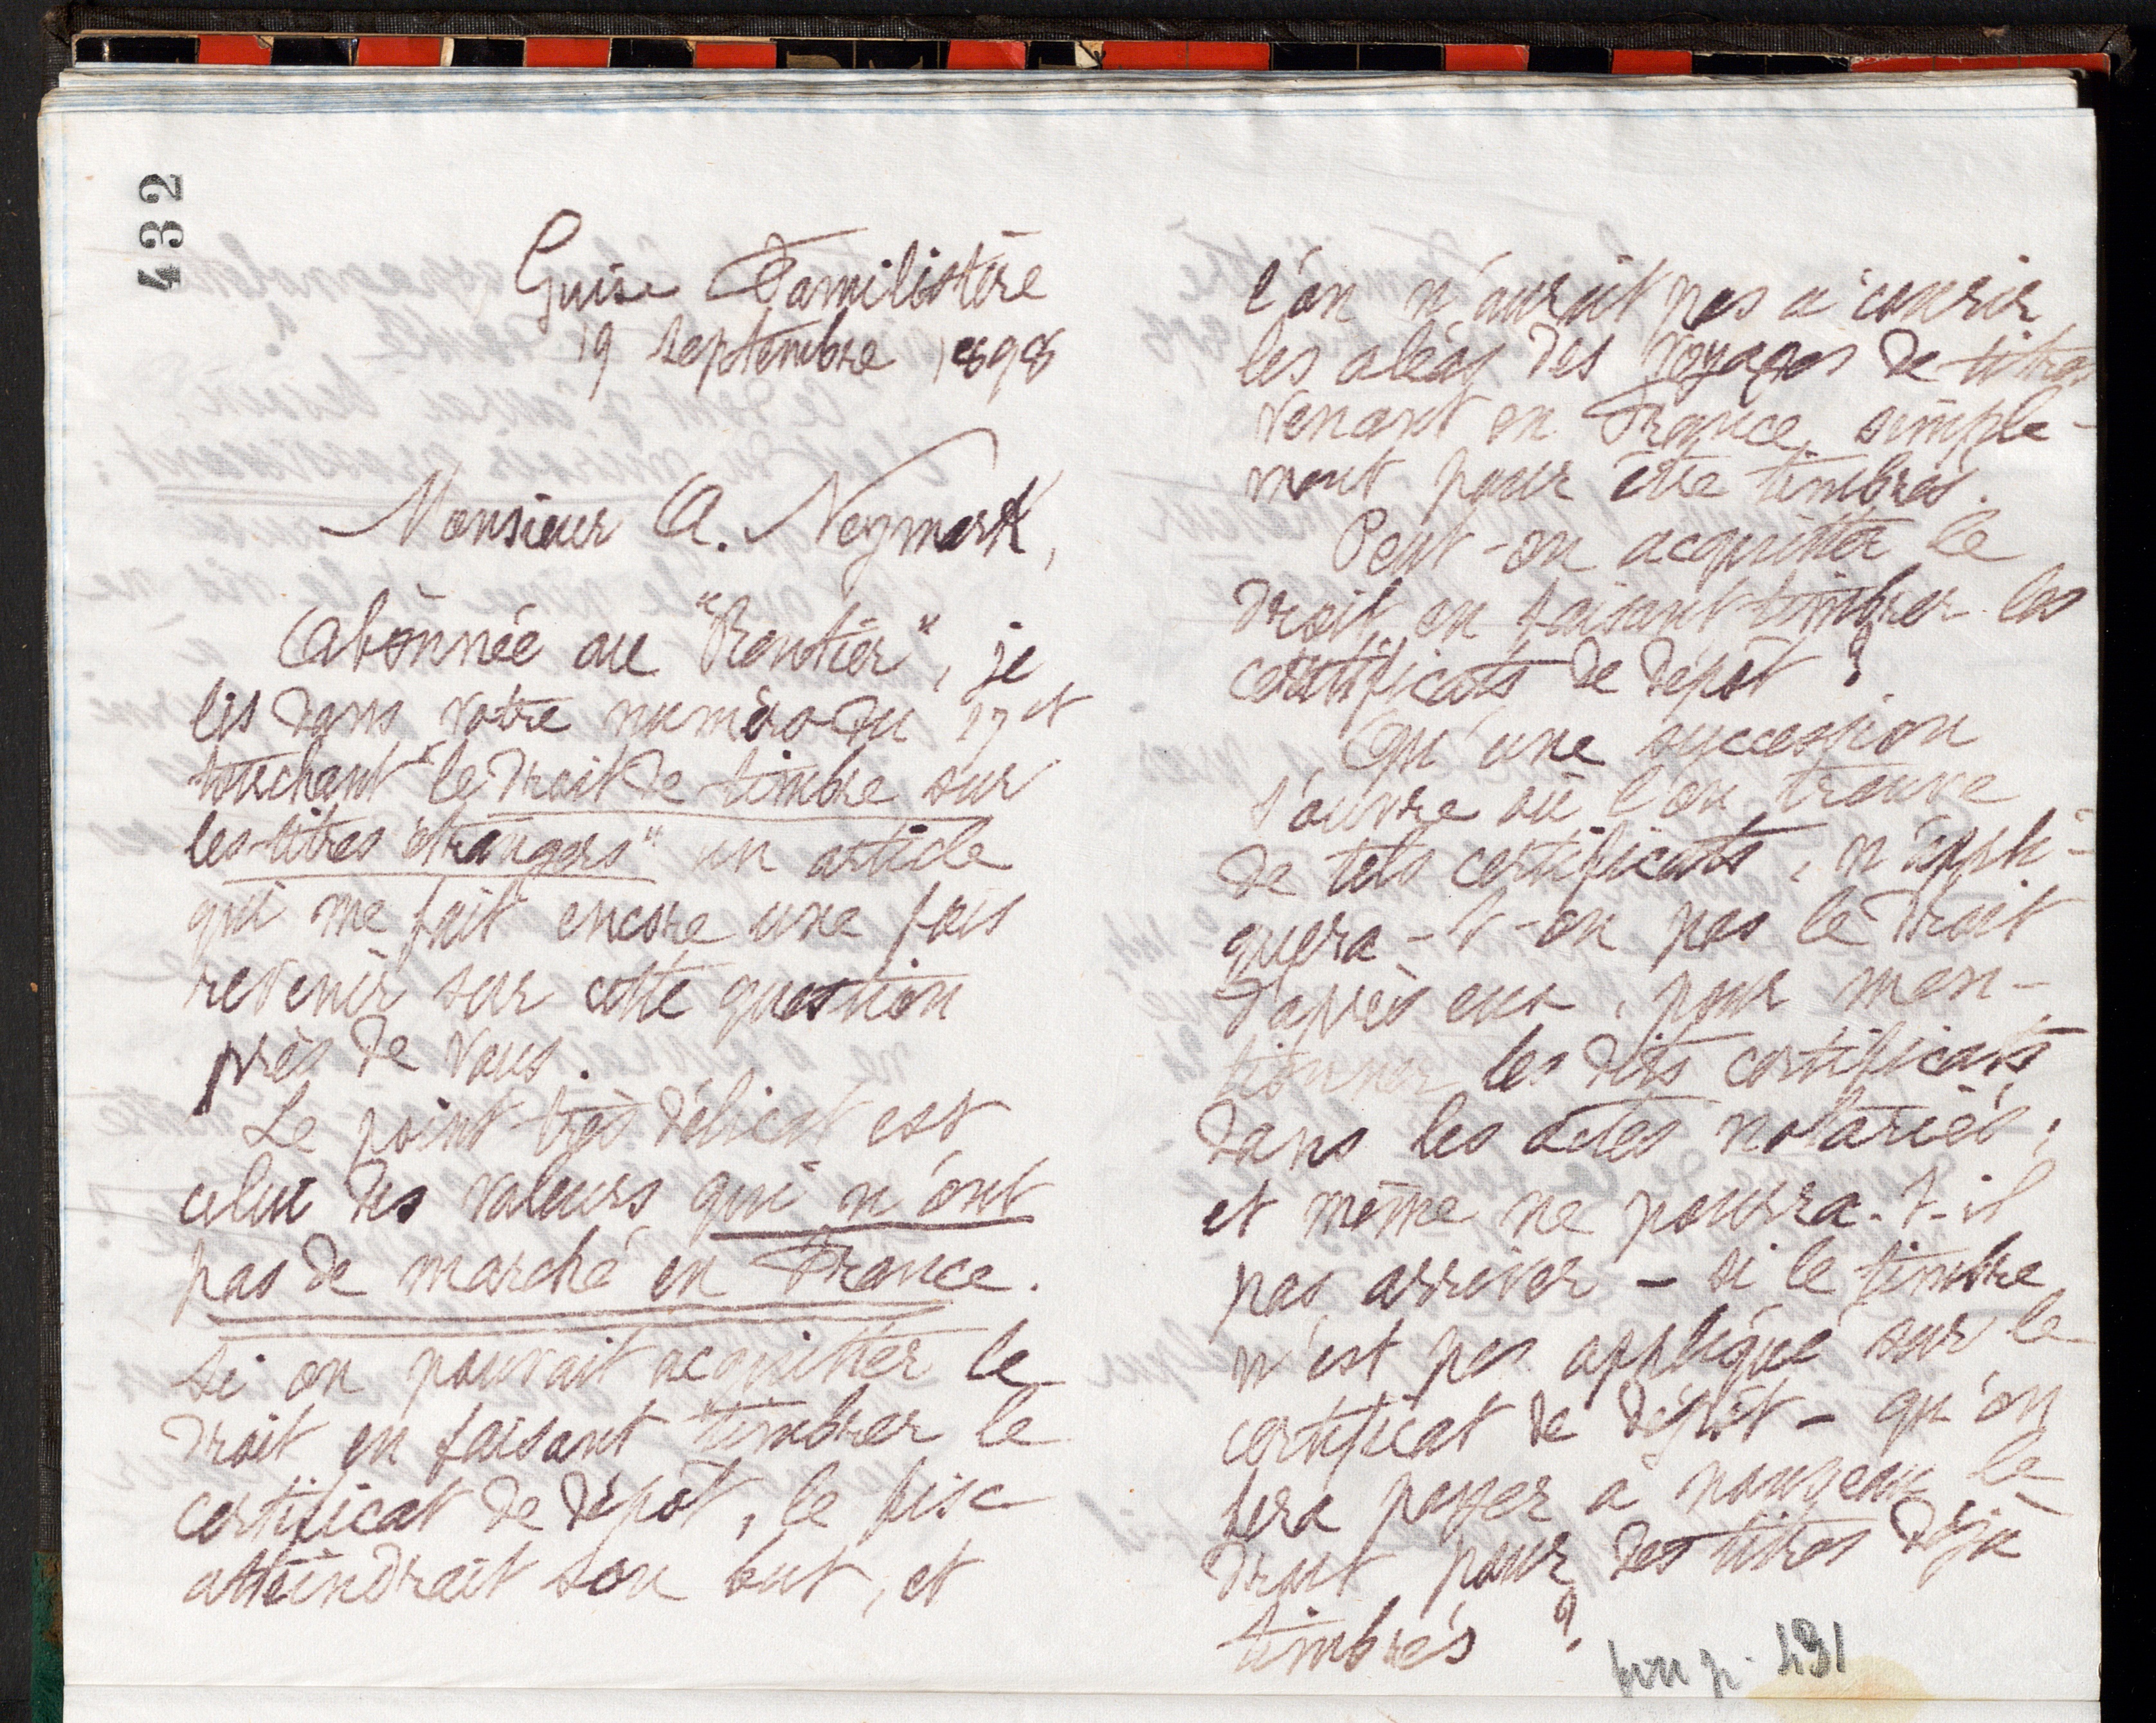 432
Guise Familistère
19 septembre 1898
Monsieur A. Neymark,
Abonnée au "Rentier", je
lis dans votre numéro du 17 ct
touchant "le droit de timbre sur
les titres étrangers" un article
qui me fait encore une fois
revenir sur cette question
près de vous.
Le point très délicat est
celui des valeurs qui n'ont
pas de marché en France.
Si on pouvait acquitter le
droit en faisant timbrer le
certificat de dépôt, le fisc
atteindrait son but, et
l'on n'aurait pas à courir
les aléas des voyages de titres
venant en France simple-
ment pour être timbrés.
Peut-on acquitter le
droit en faisant timbrer les
certificats de dépôt ?
Qu'une succession
s'ouvre où l'on trouve
de tels certificats, n'appli-
quera-t-on pas le droit
d'après eux, pour men-
tionner les dits certificats
dans les actes notariés ;
et même ne pourra-t-il
pas arriver – si le timbre
n'est pas appliqué sur le
certificat de dépôt – qu'on
fera payer à nouveau le
droit pour des titres déjà
timbrés ?
p. 431